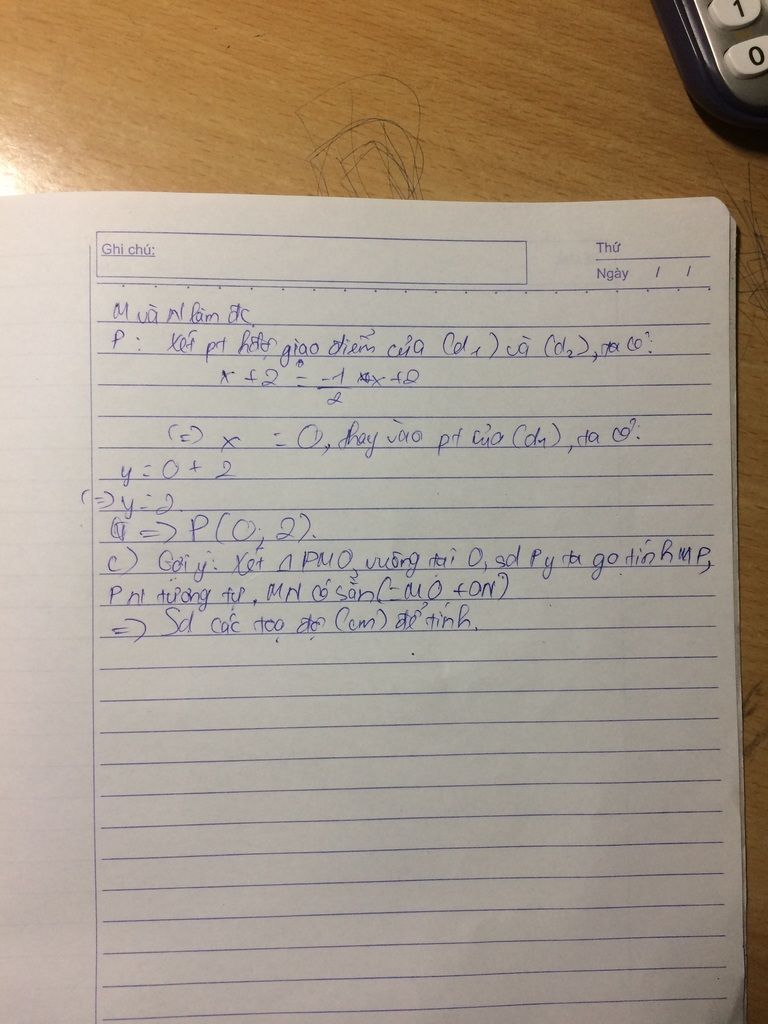 1
0
Ghi chú:
Thứ
Ngày / /
M và N làm đc
P: Xét pt hđộ giao điểm của (d1) và (d2), ta có:
x + 2 = -1/2 x + 2
(=) x = 0, thay vào pt của (d1), ta có:
y = 0 + 2
(=) y = 2.
=) P(0; 2).
c) Gợi ý: Xét Δ PMO, vuông tại O, sd Py ta go tính MP,
PN tương tự, MN có sẵn (=MO + ON)
=) Sd các toạ độ (cm) để tính.